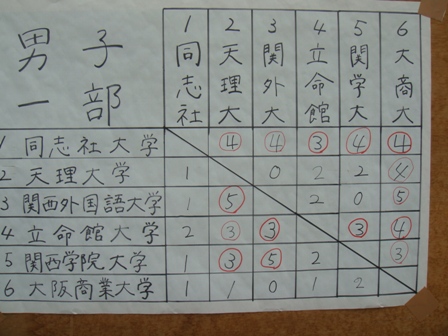 男子
一部
1 同志社
2 天理大
3 関外大
4 立命館
5 関学大
6 大商大
1 同志社大学 4 4 3 4 4
2 天理大学 1 0 2 2 4
3 関西外国語大学 1 5 2 0 5
4 立命館大学 2 3 3 3 4
5 関西学院大学 1 3 5 2 3
6 大阪商業大学 1 1 0 1 2